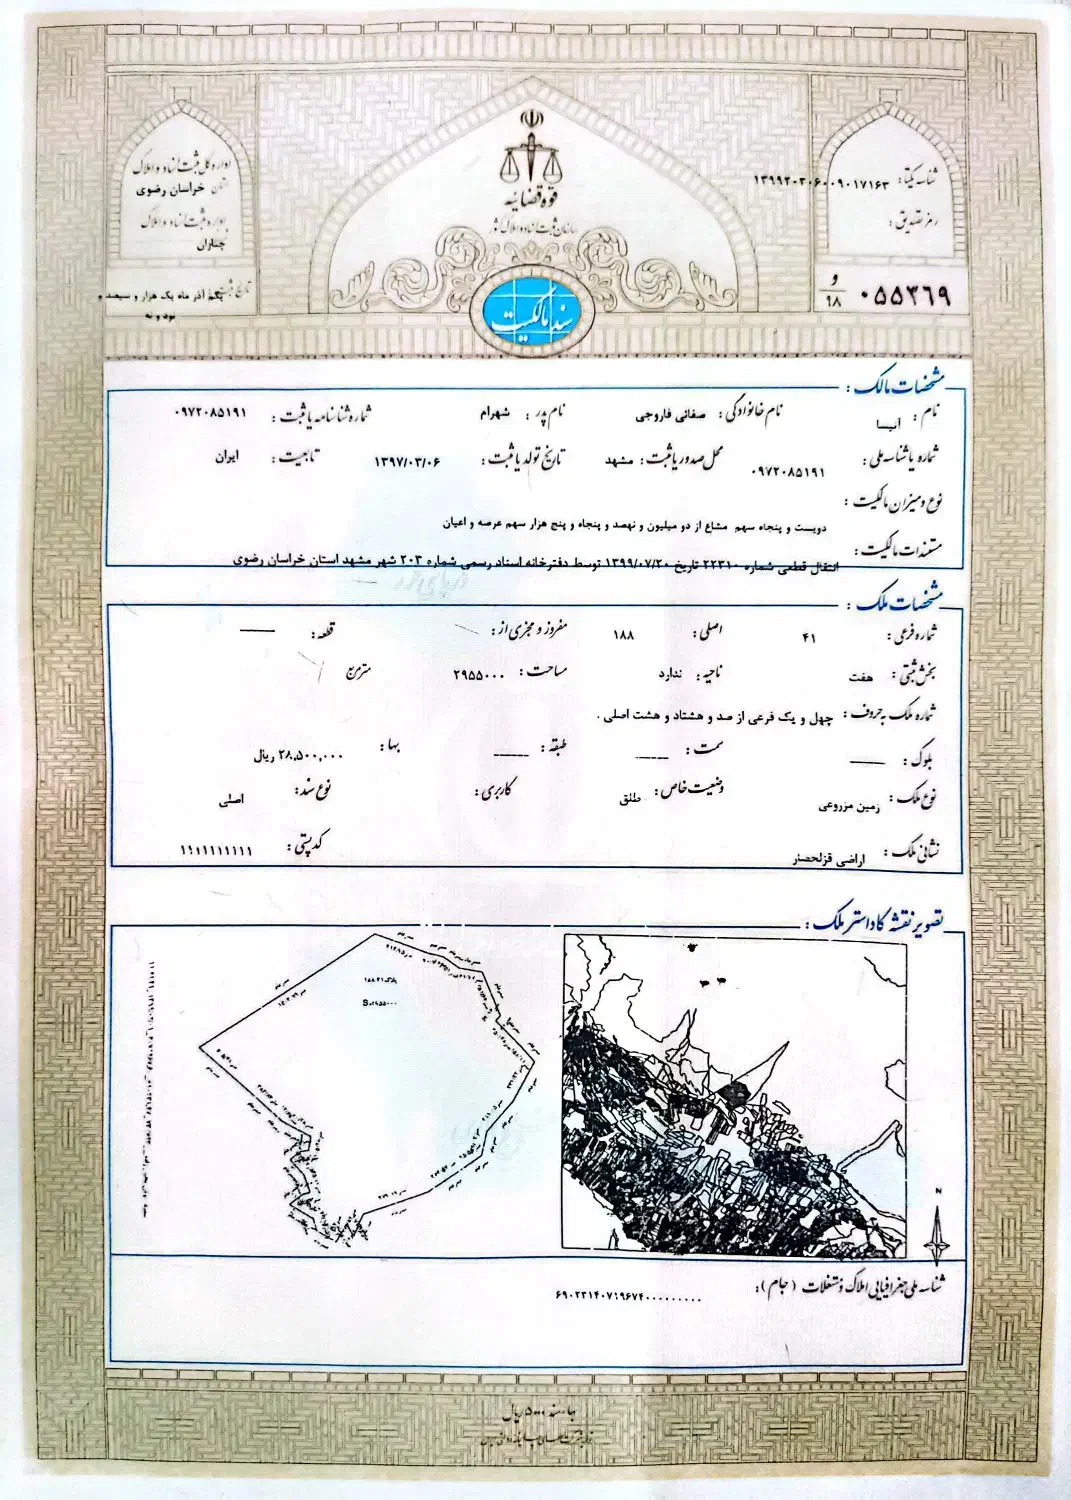 قوه قضائیه
سازمان ثبت اسناد و املاک کشور
سند مالکیت
شناسه یکتا: ۱۳۹۹۲۰۳۰۶۰۰۹۰۱۷۱۶۳
رمز تصدیق:
و
۹۸
۰۵۵۳۶۹
اداره کل ثبت اسناد و املاک
استان خراسان رضوی
اداره ثبت اسناد و املاک
چناران
تاریخ ثبت: یکم آذر ماه یک هزار و سیصد و
نود و نه
مشخصات مالک:
نام: آنیسا نام خانوادگی: صفائی فاروجی نام پدر: شهرام شماره شناسنامه یا ثبت: ۰۹۷۲۰۸۵۱۹۱
شماره یا شناسه ملی: ۰۹۷۲۰۸۵۱۹۱ محل صدور یا ثبت: مشهد تاریخ تولد یا ثبت: ۱۳۹۷/۰۳/۰۶ تابعیت: ایران
نوع و میزان مالکیت:
دویست و پنجاه سهم مشاع از دو میلیون و نهصد و پنجاه و پنج هزار سهم عرصه و اعیان
مستندات مالکیت:
انتقال قطعی شماره ۲۲۳۱۰ تاریخ ۱۳۹۹/۰۷/۲۰ توسط دفترخانه اسناد رسمی شماره ۲۰۳ شهر مشهد استان خراسان رضوی
مشخصات ملک:
شماره فرعی: ۴۱ اصلی: ۱۸۸ مفروز و مجزی از: قطعه:
بخش ثبتی: هفت ناحیه: ندارد مساحت: ۲۹۵۵۰۰۰ مترمربع
شماره ملک به حروف: چهل و یک فرعی از صد و هشتاد و هشت اصلی .
بلوک: سمت: طبقه: بها: ۲۸,۵۰۰,۰۰۰ ریال
نوع ملک: زمین مزروعی وضعیت خاص: طلق کاربری: نوع سند: اصلی
نشانی ملک: اراضی قزلحصار کدپستی: ۱۱۱۱۱۱۱۱۱۱
تصویر نقشه کاداستر ملک:
پلاک ۱۸۸.۴۱
S=۲۹۵۵۰۰۰
N
شناسه ملی جغرافیایی املاک و مستغلات (جام): ۶۹۰۲۳۱۴۰۷۱۹۶۷۴۰۰۰۰۰۰۰۰۰